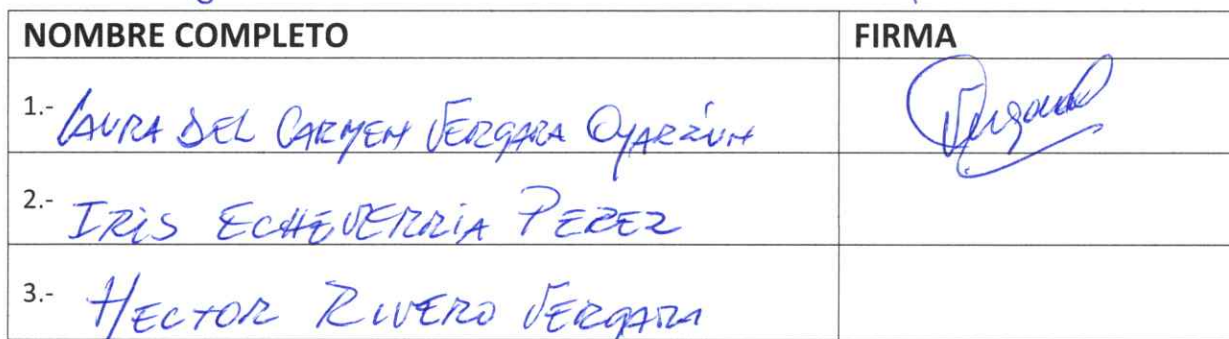 NOMBRE COMPLETO FIRMA
1.- LAURA DEL CARMEN VERGARA OYARZÚN Vergara
2.- IRIS ECHEVERRÍA PEREZ
3.- HECTOR RIVERO VERGARA